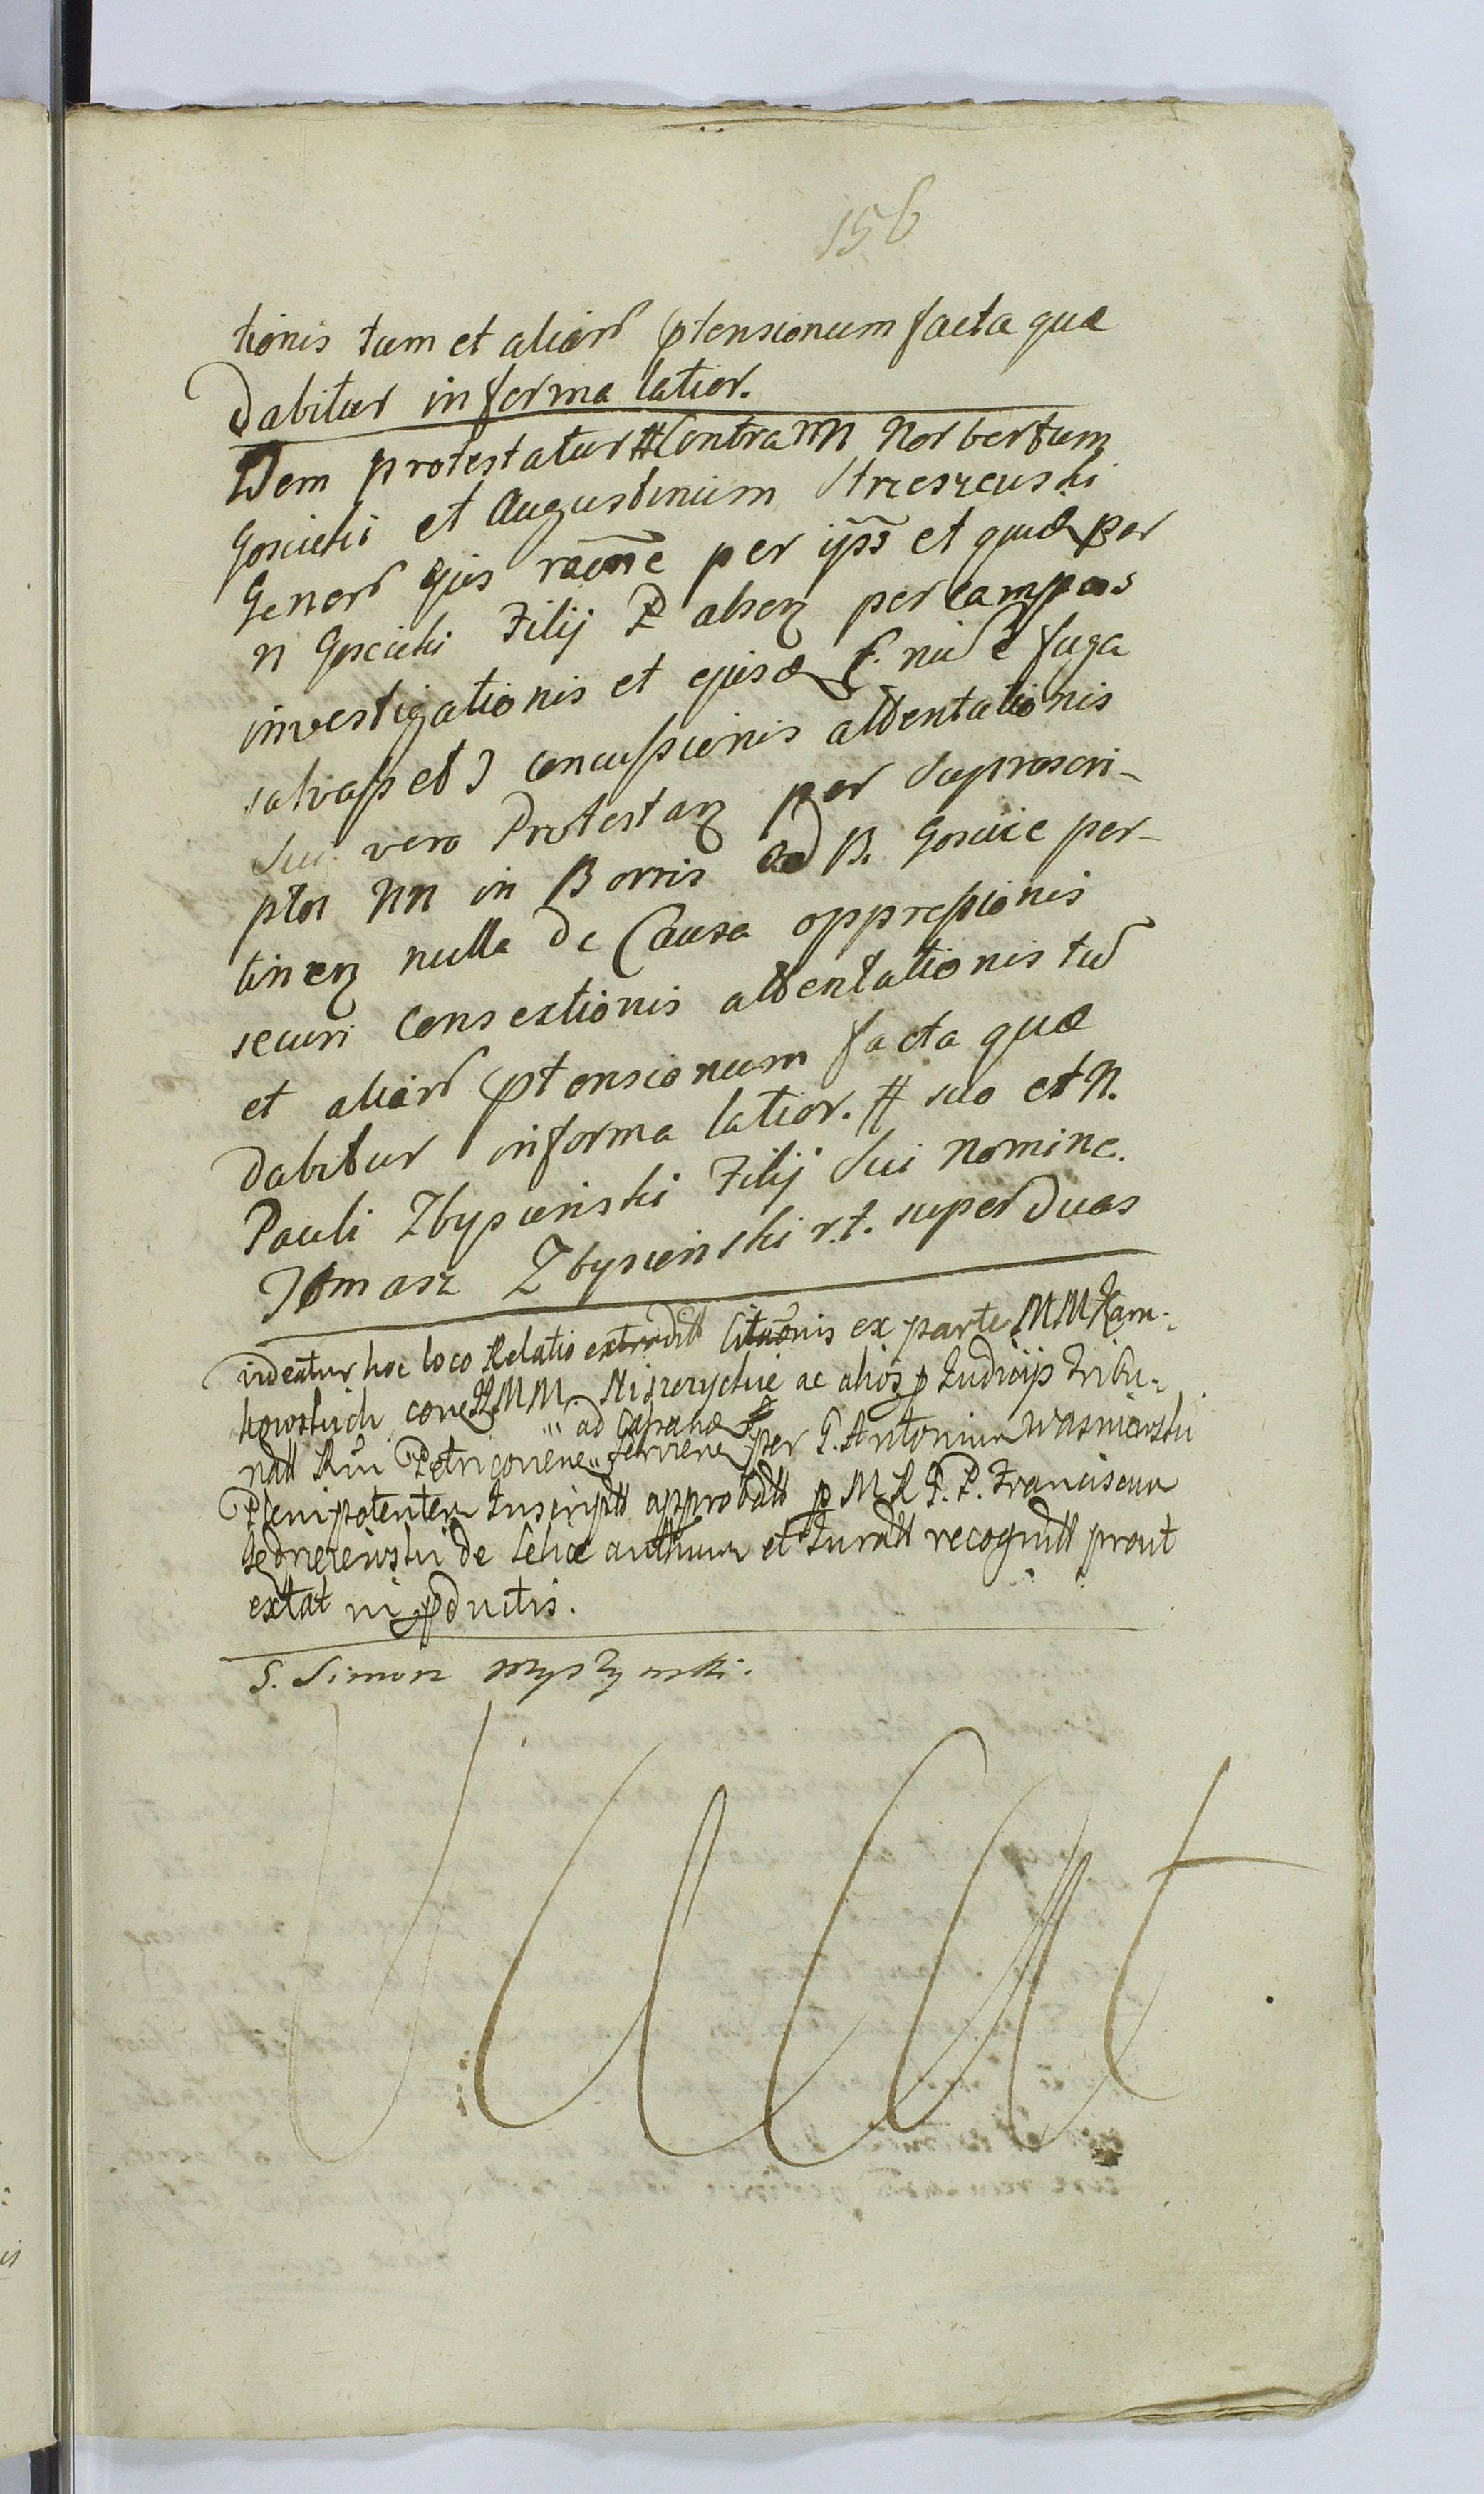 156
tionis tum et aliar ptensionum facta quæ
Dabitur in forma latior.
Idem protestatur # Contra NN Norbertum
Goscicki et Augustinum Strzeszewski
Gener ejus raone per ipss et quidæ per
N Goscicki Filij P absen per campos
investigationis et ejusd nid e fuga
salvass et concussionis attentationis
Sui vero Protestan per Suprascri-
ptos NN in Bonis ad B. Goscice per-
tinen nulla De Causa oppressionis
securi consextionis attentationis tu
et aliar ptensionum facta quæ
Dabitur in forma latior. # suo et N.
Pauli Zbysienski Filij Sui Nomine.
Tomasz Zbysienski r.t. super Duas
ideatur hoc loco Relatio extradit Citaonis ex parte MM Kam-
kowskich cone MM Mijrzychie ac alios p Judicijs Tribu-
ad Capanæ
natt Petricoviene ferviene per G. Antonium Wasniewski
Plenipotentem Inscriptt approbatt p M R P. P. Franciscum
Jedrzeiewski de Celice authum et Juratt recognitt prout
extat in pductis.
S. Simon Myszynski.